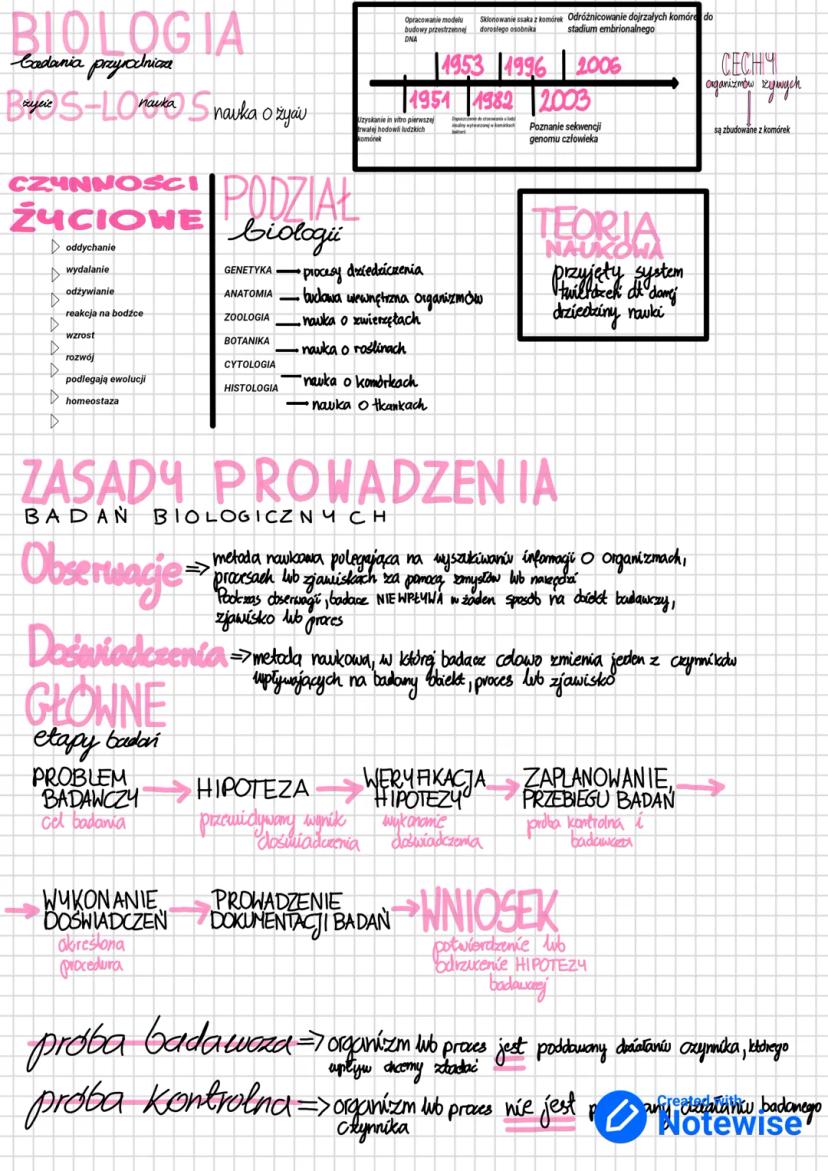 BIOLOGIA
badania przyrodnicze
BIOS-LOGOS nauka o życiu
życie nauka
Opracowanie modelu
budowy przestrzennej
DNA
Sklonowanie ssaka z komórek
dorosłego osobnika
Odróżnicowanie dojrzałych komórek do
stadium embrionalnego
1953 1996 2006
1951 1982 2003
Uzyskanie in vitro pierwszej
trwałej hodowli ludzkich
komórek
Dopuszczenie do stosowania u ludzi
insuliny wytworzonej w komórkach
bakterii
Poznanie sekwencji
genomu człowieka
CECHY
organizmów żywych
są zbudowane z komórek
CZYNNOŚCI
ŻYCIOWE
oddychanie
wydalanie
odżywianie
reakcja na bodźce
wzrost
rozwój
podlegają ewolucji
homeostaza
PODZIAŁ
biologii
GENETYKA procesy dziedziczenia
ANATOMIA budowa wewnętrzna organizmów
ZOOLOGIA nauka o zwierzętach
BOTANIKA nauka o roślinach
CYTOLOGIA nauka o komórkach
HISTOLOGIA nauka o tkankach
TEORIA
NAUKOWA
przyjęty system
twierdzeń dt danej
dziedziny nauki
ZASADY PROWADZENIA
BADAŃ BIOLOGICZNYCH
Obserwacje => metoda naukowa polegająca na wyszukiwaniu informacji o organizmach,
procesach lub zjawiskach za pomocą zmysłów lub narzędzi
Podczas obserwacji, badacz NIE WPŁYWA w żaden sposób na obiekt badawczy,
zjawisko lub proces
Doświadczenia => metoda naukowa, w której badacz celowo zmienia jeden z czynników
wpływających na badany obiekt, proces lub zjawisko
GŁÓWNE
etapy badań
PROBLEM
BADAWCZY
cel badania
HIPOTEZA
przewidywany wynik
doświadczenia
WERYFIKACJA
HIPOTEZY
wykonanie
doświadczenia
ZAPLANOWANIE
PRZEBIEGU BADAŃ
próba kontrolna i
badawcza
WYKONANIE
DOŚWIADCZEŃ
określona
procedura
PROWADZENIE
DOKUMENTACJI BADAŃ
WNIOSEK
potwierdzenie lub
odrzucenie HIPOTEZY
badawczej
próba badawcza => organizm lub proces jest poddawany działaniu czynnika, którego
wpływ chcemy zbadać
próba kontrolna => organizm lub proces nie jest działaniu badanego
czynnika
Created with
Notewise